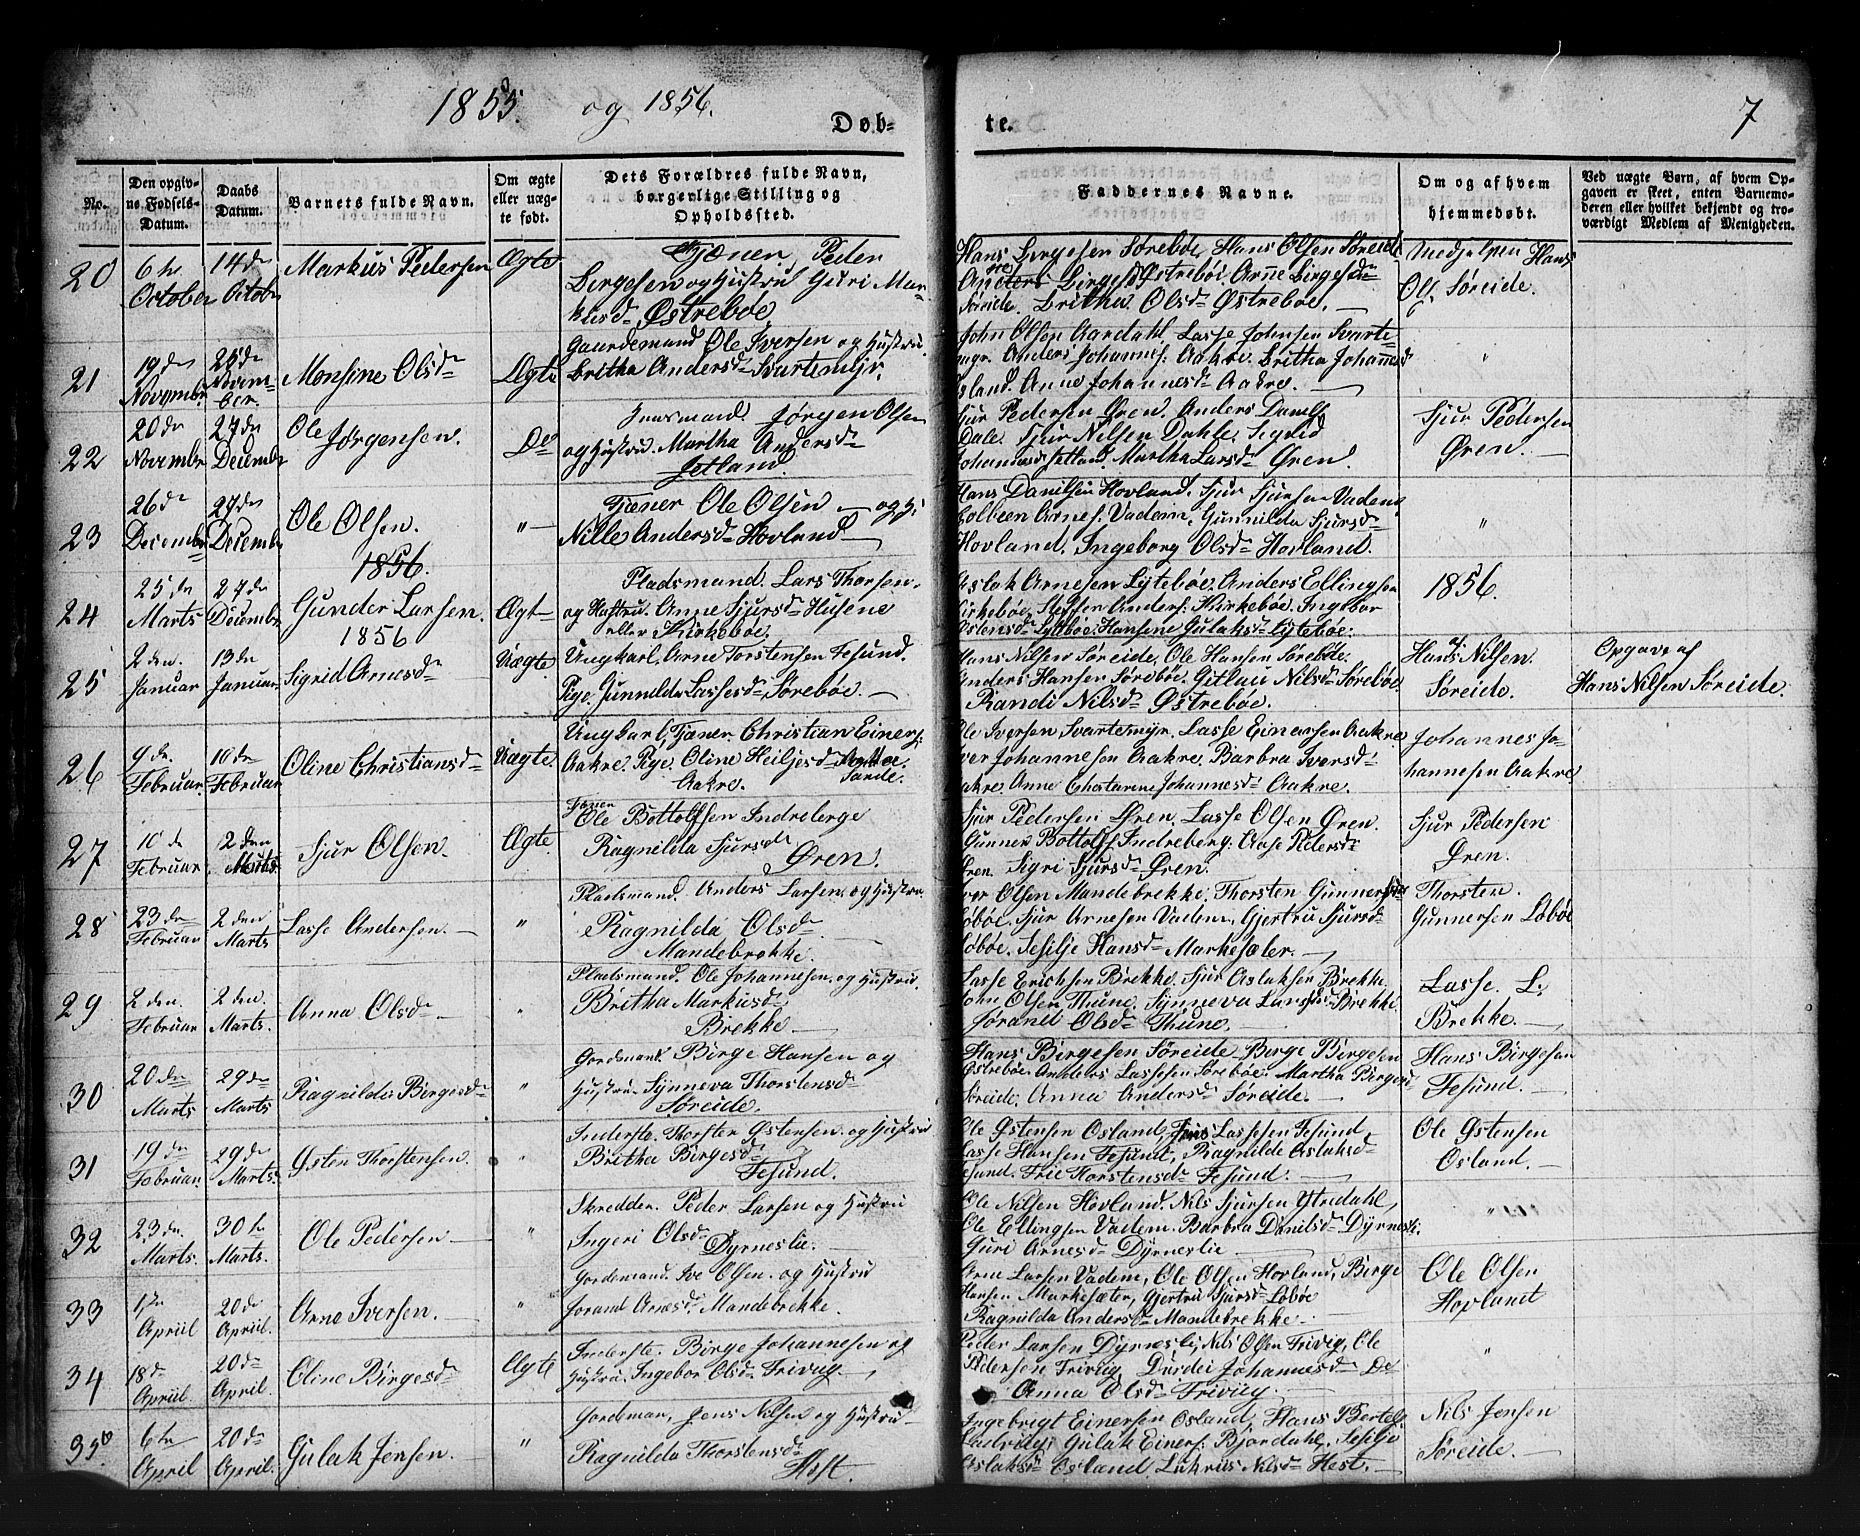 1855 og 1856.
Døb-
te.
7
No.
Den opgiv-
ne Fødsels-
Datum.
Daabs
Datum.
Barnets fulde Navn.
Om ægte
eller uæg-
te født.
Dets Forældres fulde Navn,
borgerlige Stilling og
Opholdssted.
Faddernes Navne.
Om og af hvem
hjemmedøbt.
Ved uægte Børn, af hvem Op-
gaven er skeet, enten Barnemo-
deren eller hvilket bekjendt og tro-
værdigt Medlem af Menigheden.
20
6te
October
14de
Octobr
Markus Pedersen
Ægte
Tjæner, Peder
Birgesen og Hustru Guri Mar-
kusd Østrebøe
Hans Birgesen Sørebøe, Hans Olsen Søreide
Anders Birgesd Østrebøe Arne Birgesdn
Søreide. Britha Olsd Østrebøe.
Medjelpen Hans
Ols. Søreide.
21
19de
Novembr
25de
Novem-
ber.
Monsine Olsd
Ægte
Gaardemand Ole Iversen og Hustru
Britha Andersd Svartemyr.
John Olsen Aardahl Lasse Johnsen Svarte-
myr. Anders Johannes. Aakre. Britha Johannesd
Osland. Anne Johannesd Aakre.
"
22
20de
Novembr
27de
Decembr
Ole
Jørgensen.
Do
Huusmand Jørgen Olsen
og Hustru. Martha Andersd
Jetland.
Sjur Pedersen Øren. Anders Danils
Dale. Sjur Nilsen Dahle. Sigrid
Johannesd Jetland. Martha Larsd Øren.
Sjur Pedersen
Øren.
23
26de
Decembr
27de
Decembr
Ole Olsen.
"
Tjæner Ole Olsen og H.
Nille Andersd Hovland
Hans Danilsen Hovland. Sjur Sjursen Vadem
Colbeen Arnes. Vadem. Gunnilda Sjursd
Hovland. Ingeborg Olsd Hovland.
"
1856.
24
25de
Marts
27de
Decembr
Gunder Larsen.
Ægt
Pladsmand. Lars Thorsen
og Hustru. Anne Sjursd Husene
eller Kirkebøe.
Aslak Arnesen Lytebøe. Anders Ellingsen
Kirkebøe. Steffen Anders. Kirkebøe. Ingebor
Ostensd Lytebøe. Hansene Gulaksd Lytebøe.
1856.
1856
25
2den
Januar
13de
Januar
Sigrid Arnesd
Uægte
Ungkarl. Arne Torstensen Fesund.
Pige Gunnilda Lassesd Sørebøe.
Hans Nilsen Søreide. Ole Hansen Sørebøe
Anders Hansen Sørebøe. Gitlau Nilsd Sørebøe
Randi Nilsd Østrebøe.
Hans Nilsen.
Søreide.
Opgave af
Hans Nilsen Søreide.
26
9de
Februar.
10de
Februar
Oline Christiansd
Uægte
Ungkarl, Tjæner Christian Einers.
Aakre. Pige. Oline Heiljesd
Sande.
Aakre.
Ole Iversen Svartemyr. Lasse Einersen Aakre
Iver Johannesen Aakre. Barbra Iversd
Aakre. Anne Chatarine Johannesd Aakre.
Johannes Jo-
hannesen Aakre
27
10de
Februar
2den
Marts
Sjur Olsen.
Ægte
Tjæner
Ole Bottolfsen Indreberge
Ragnilda Sjursd
Øren.
Sjur Pedersen Øren. Lasse Olsen Øren.
Gunner Bottolfs Indreberg. Aase Pedersd
Øren. Sigri Sjursd Øren.
Sjur Pedersen
Øren.
28
23de
Februar
2den
Marts
Lasse Andersen.
"
Pladsmand. Anders Larsen, og Hustru
Ragnilda Olsd
Mandebrekke.
Iver Olsen Mandebrekke. Thorsten Gunnersen
Løbøe. Sjur Arnesen Vadem, Gjertru Sjursd
Løbøe. Sesilje Hansd Markesæter.
Thorsten.
Gunnersen Løbøe
29
2den.
Februar
2den.
Marts.
Anna Olsd
"
Pladsmand. Ole Johannesen. og Hustru.
Britha Markusd
Brekke.
Lasse Erichsen Brekke. Sjur Aslaksen Brekke.
John Olsen Thune. Synneva Larsd Brekke.
Jørand Olsd Thune.
Lasse. L.
Brekke.
30
20de
Marts
29de
Marts
Ragnilda Birgesd
"
Gordmand. Birge Hansen og
Hustru. Synneva Thorstensd
Søreide.
Hans Birgesen Søreide. Birge Birgesen
Østrebøe. Anders Lassesen Sørebøe. Martha Birgesd
Søreide. Anna Andersd Søreide.
Hans Birgesen
Fesund.
31
19de
Februar.
29de
Marts.
Østen Thorstensen.
"
Inderste. Thorsten Østensen. og Hustru
Britha Birgesd
Fesund.
Ole Østensen Osland, Jens Lassesen Fesund
Lasse Hansen Fesund, Ragnilde Aslaksd
Fesund. Frie Torstensd Fesund.
Ole Østensen
Osland.
32
23de
Marts.
30te
Marts.
Ole Pedersen
"
Skredder. Peder Larsen og Hustru
Ingeri Olsd
Dyrneslie.
Ole Nilsen Hovland. Nils Sjursen Ytredahl,
Ole Ellingsen Vadem. Barbra Danilsd Dyrnesli.
Guri Arnesd Dyrneslie
"
33
1ste
Apriil
20de
Apriil.
Arne Iversen.
"
Gordemand. Ive Olsen. og Hustru
Jorand Arnesd. Mandebrekke.
Arne Larsen Vadem, Ole Olsen Hovland, Birge
Hansen Markesæter, Gjertru Sjursd Løbøe
Ragnilda Andersd Mandebrekke.
Ole Olsen
Hovland
34
18de
Apriil
20de
April.
Oline Birgesd
Ægte
Inderste. Birge Johannesen og
Hustru. Ingebor Olsd Trivug.
Peder Larsen Dyrnesli, Nils Olsen Trivig, Ole
Pedersen Trivüg, Durdei Johannesd Do
Anna Olsd Trivüg.
"
35
6te
April
20de
April.
Gulak Jensen.
"
Gordeman, Jens Nilsen og Hustru
Ragnilda Thorstensd
Hest.
Ingebrigt Einersen Osland, Hans Bertel.
Ladvig, Gulak Einers. Bjordahl, Sesilje
Aslaksd Osland Lukriis Nilsd Hest.
Nils Jensen
Søreide.